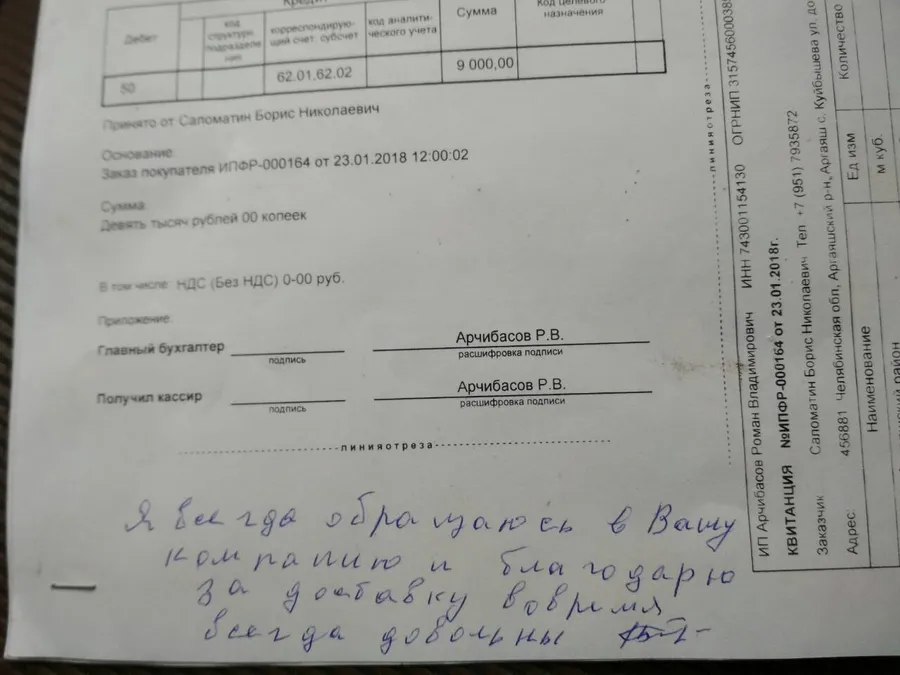 Кредит
Дебет
код структурн. подразделения
корреспондирующий счет, субсчет
код аналитического учета
Сумма
Код целевого назначения
50
62.01,62.02
9 000,00
Принято от Саломатин Борис Николаевич
Основание:
Заказ покупателя ИПФР-000164 от 23.01.2018 12:00:02
Сумма
Девять тысяч рублей 00 копеек
В том числе НДС (Без НДС) 0-00 руб.
Приложение:
Главный бухгалтер Арчибасов Р.В.
подпись расшифровка подписи
Получил кассир Арчибасов Р.В.
подпись расшифровка подписи
линияотреза
Я всегда обращаюсь в Вашу
компанию и благодарю
за доставку вовремя
всегда довольны
линияотреза
ИП Арчибасов Роман Владимирович ИНН 743001154130 ОГРНИП
КВИТАНЦИЯ №ИПФР-000164 от 23.01.2018г.
Заказчик Саломатин Борис Николаевич Тел +7 (951) 7935872
Адрес: 456881 Челябинская обл, Аргаяшский р-н, Аргаяш с. Куйбышева ул
Наименование Ед изм Количество
м куб.